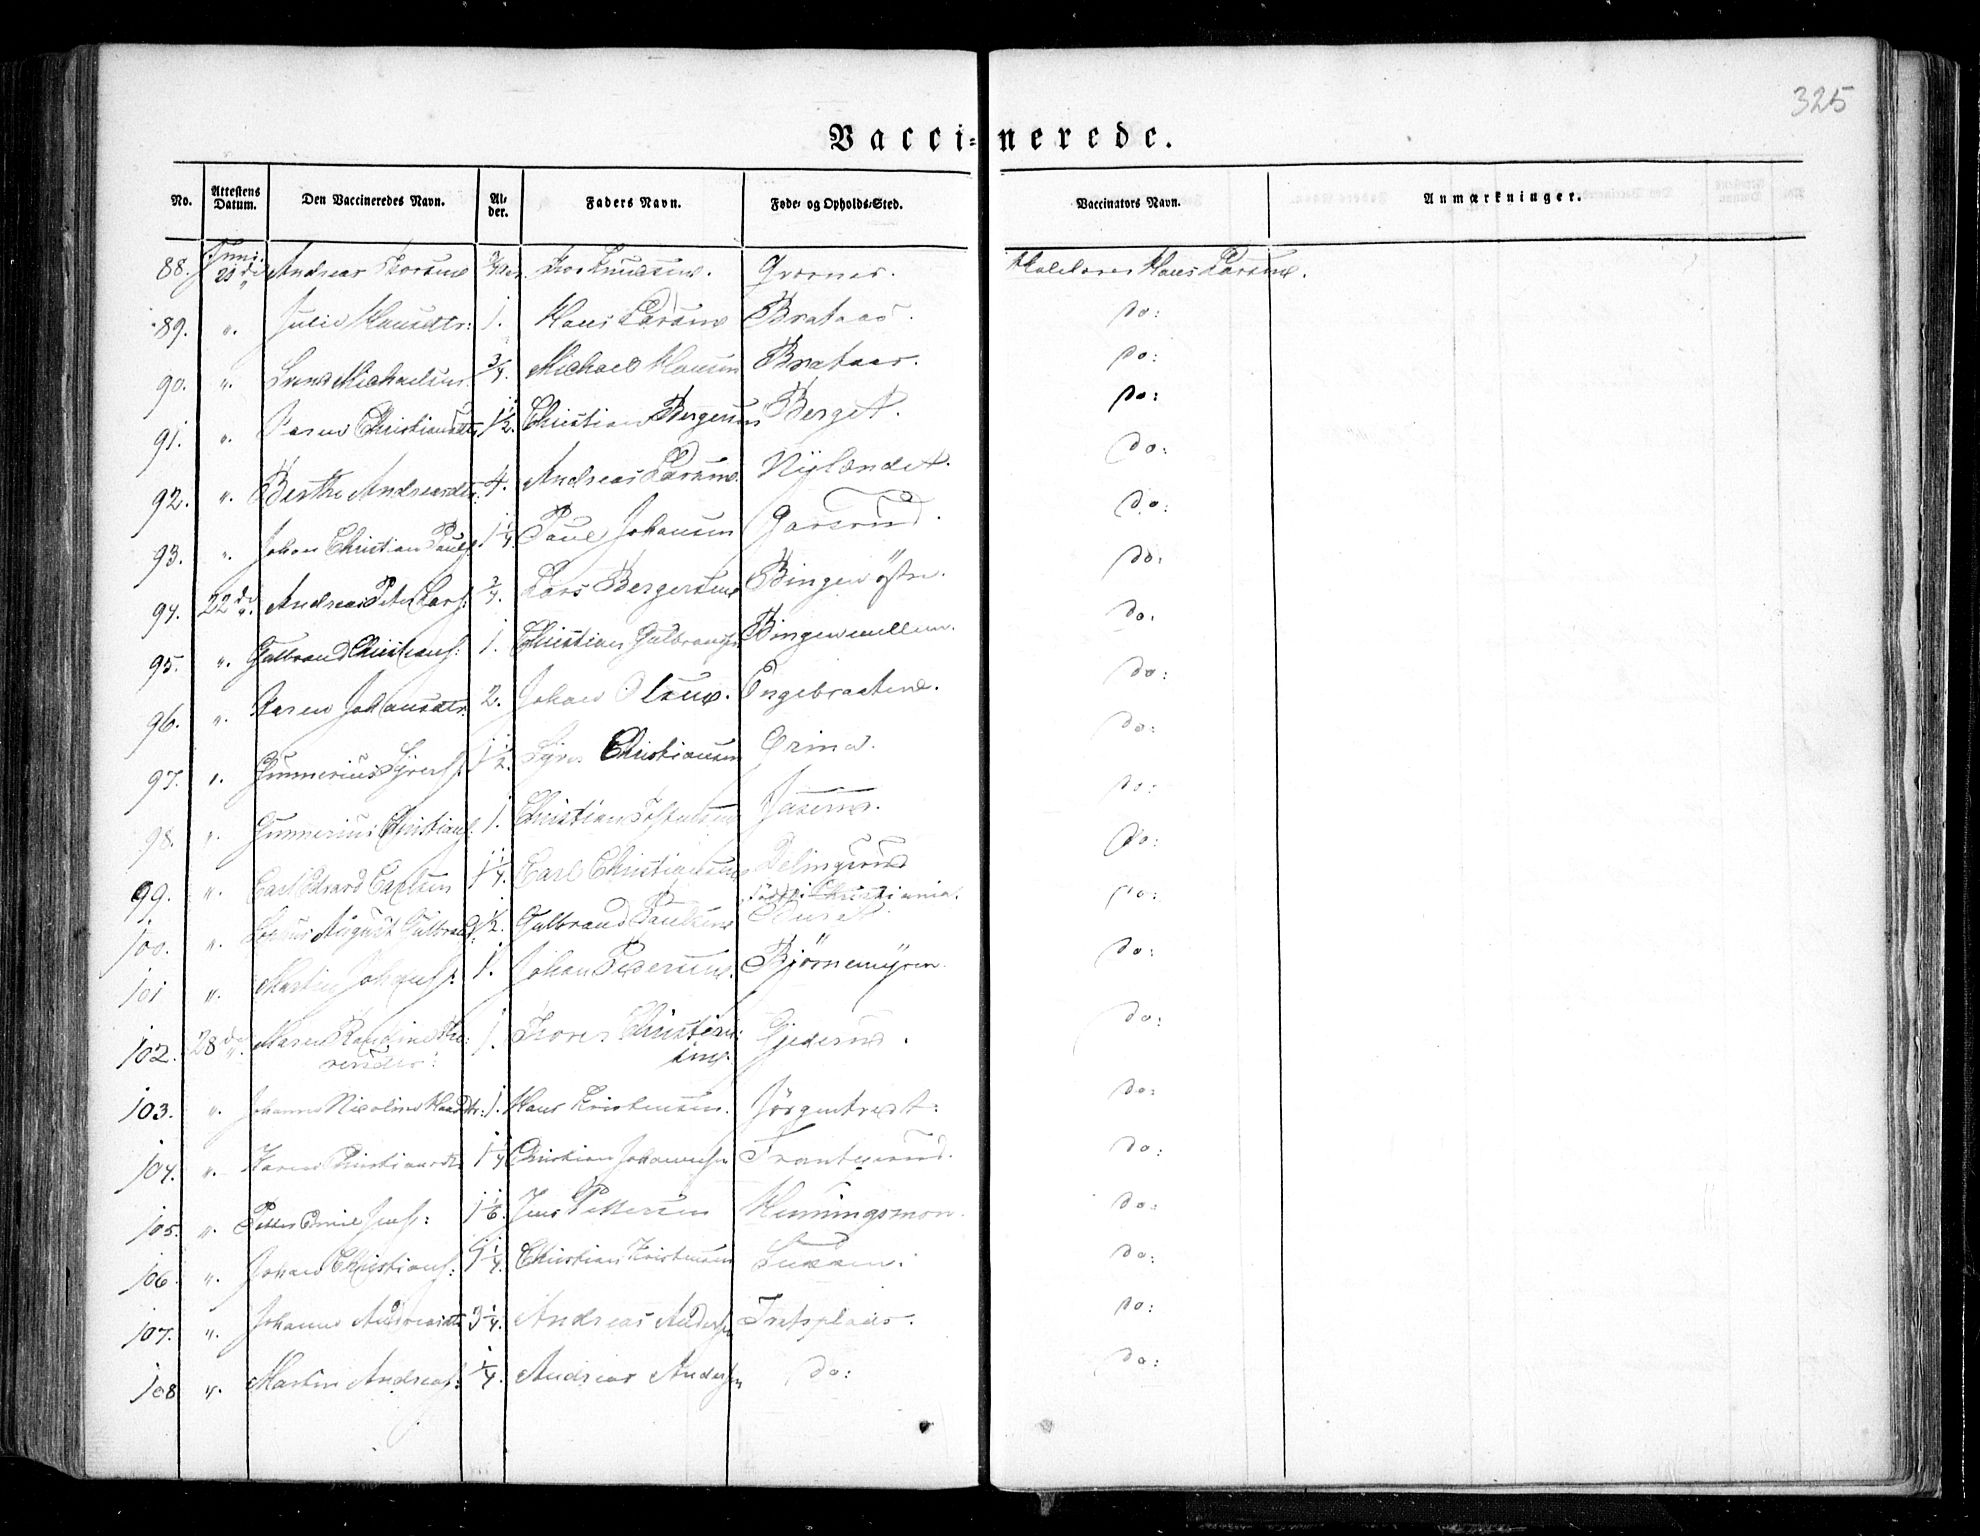 325
Vaccinerede.
No. Attestens Datum. Den Vaccineredes Navn. Alder. Faders Navn. Føde- og Opholds-Sted. Vaccinators Navn. Anmærkninger.
88. Juni 21de Andreas Hans Larsen.
89. " Julie Hansdtr: 1. Hans Larsen Brataas. do:
90. " Michaelsen 3/4. Michael Hansen Brataas. do:
91. " Karen Christiansdtr 1 1/2. Christian Bergersen Berget. do:
92. " Berthe Andreasdtr. 4. Andreas Larsen Nylændet. do:
93. " Johan Christian Pauls. 1 1/4. Paul Johansen Garsrud. do:
94. 22de " Andreas Peter Lars. 3/4. Lars Bergersen Bingen östre. do:
95. " Gulbrand Christians: 1. Christian Gulbrands. Bingen mellem. do.
96. " Karen Johansdtr. 2. Johan Olsen. Engebraaten. do:
97. " Gunnerius 1 1/2. Christiansen do:
98. " Gunnerius Christians. 1. Christian do:
99. " Carl Edvard Carlsen 1 1/4 Carl Christiansen Delingsrud do:
født i Christiania.
100. " August Gulbrands. 1/2. Gulbrand Paulsen do:
101 " Martin Johans: 1. Johan Pedersen. Bjørnemyren. do:
102. 28de " Maren 1. Christen- Gjedsrud. do:
sen.
103. " Johanne Nicoline Hansdtr: 1. Hans Kristensen. do:
104. " Karen Christiansdtr 1 1/4 Christian Johannes. do:
105. " Petter Emil Jens: 1 1/6. Jens Pettersen Henningsmoen. do:
106. " Johan Christians: Christian Kristensen do:
107. " Johanne Andreasdtr 3 1/4. Andreas Anders. do:
108 " Martin Andreas: 1/4. Andreas Anders. do: do: